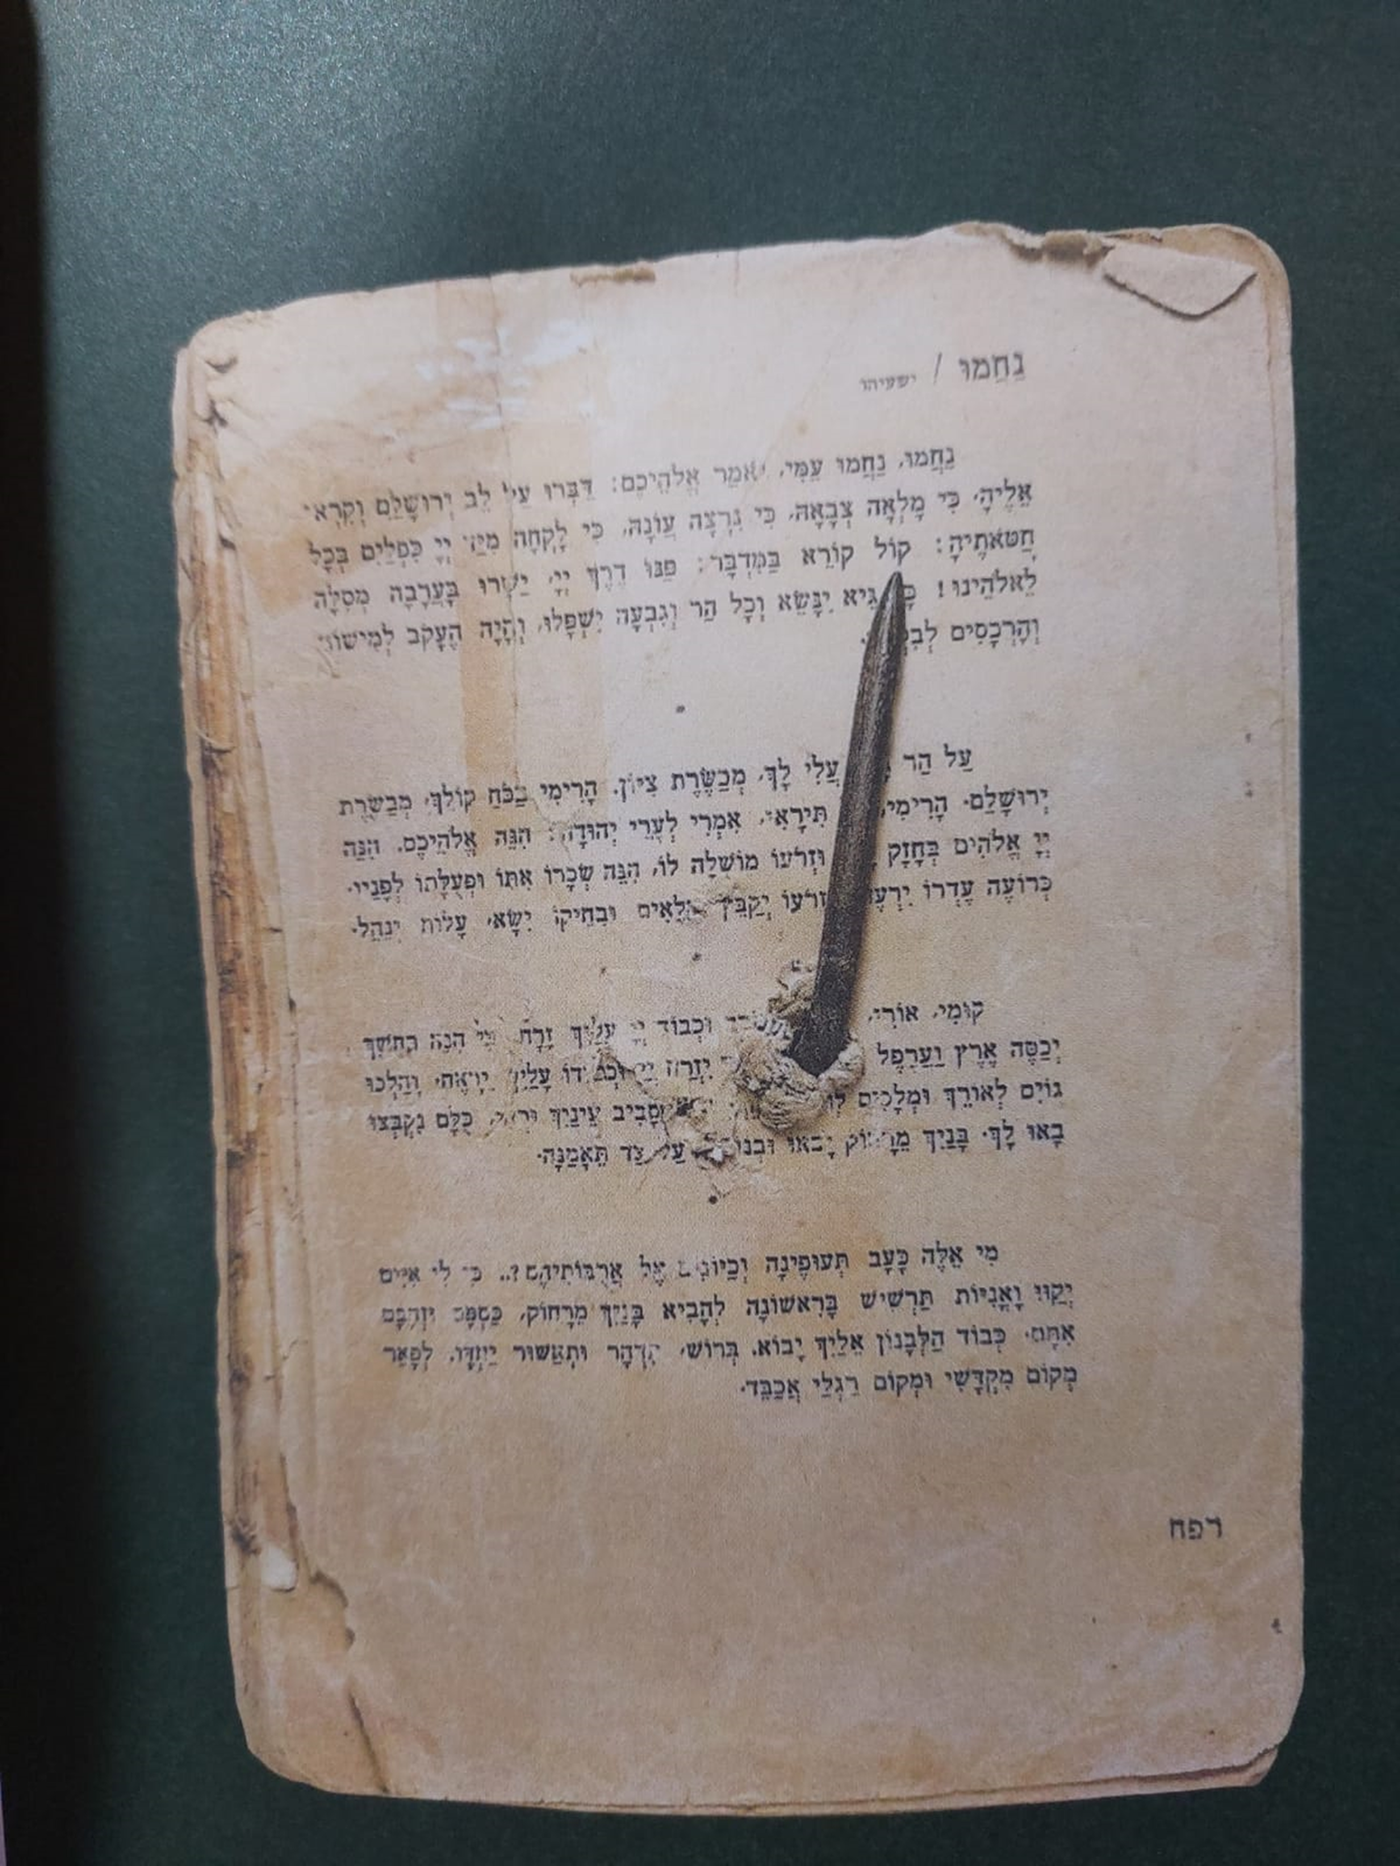 נַחֲמוּ / ישעיהו
נַחֲמוּ, נַחֲמוּ עַמִּי, יֹאמַר אֱלֹהֵיכֶם: דַּבְּרוּ עַל לֵב יְרוּשָׁלַם וְקִרְאוּ
אֵלֶיהָ, כִּי מָלְאָה צְבָאָהּ, כִּי נִרְצָה עֲוֹנָהּ, כִּי לָקְחָה מִיַּד יְיָ כִּפְלַיִם בְּכָל
חַטֹּאתֶיהָ: קוֹל קוֹרֵא בַּמִּדְבָּר: פַּנּוּ דֶרֶךְ יְיָ, יַשְּׁרוּ בָּעֲרָבָה מְסִלָּה
לֵאלֹהֵינוּ! גֶּיא יִנָּשֵׂא וְכָל הַר וְגִבְעָה יִשְׁפָּלוּ, וְהָיָה הֶעָקֹב לְמִישׁוֹר
וְהָרְכָסִים
עַל הַר עֲלִי לָךְ, מְבַשֶּׂרֶת צִיּוֹן. הָרִימִי בַכֹּחַ קוֹלֵךְ, מְבַשֶּׂרֶת
יְרוּשָׁלַם. הָרִימִי, תִּירָאִי, אִמְרִי לְעָרֵי יְהוּדָה: הִנֵּה אֱלֹהֵיכֶם. הִנֵּה
יְיָ אֱלֹהִים בְּחָזָק וּזְרֹעוֹ מוֹשְׁלָה לוֹ, הִנֵּה שְׂכָרוֹ אִתּוֹ וּפְעֻלָּתוֹ לְפָנָיו.
כְּרוֹעֶה עֶדְרוֹ יִרְעֶה בִּזְרֹעוֹ יְקַבֵּץ טְלָאִים וּבְחֵיקוֹ יִשָּׂא, עָלוֹת יְנַהֵל.
קוּמִי, אוֹרִי, וּכְבוֹד יְיָ עָלַיִךְ זָרָח. כִּי הִנֵּה הַחֹשֶׁךְ
יְכַסֶּה אֶרֶץ וַעֲרָפֶל יִזְרַח יְיָ וּכְבוֹדוֹ עָלַיִךְ יֵרָאֶה, וְהָלְכוּ
גוֹיִם לְאוֹרֵךְ וּמְלָכִים סָבִיב עֵינַיִךְ וּרְאִי, כֻּלָּם נִקְבְּצוּ
בָאוּ לָךְ. בָּנַיִךְ מֵרָחוֹק יָבֹאוּ וּבְנוֹתַיִךְ עַל צַד תֵּאָמַנָה.
מִי אֵלֶּה כָּעָב תְּעוּפֶינָה וְכַיּוֹנִים אֶל אֲרֻבּוֹתֵיהֶם?.. כִּי לִי אִיִּים
יְקַוּוּ וָאֳנִיּוֹת תַּרְשִׁישׁ בָּרִאשׁוֹנָה לְהָבִיא בָּנַיִךְ מֵרָחוֹק, כַּסְפָּם וּזְהָבָם
אִתָּם. כְּבוֹד הַלְּבָנוֹן אֵלַיִךְ יָבוֹא. בְּרוֹשׁ, תִּדְהָר וּתְאַשּׁוּר יַחְדָּו. לְפָאֵר
מְקוֹם מִקְדָּשִׁי וּמְקוֹם רַגְלַי אֲכַבֵּד.
רפח